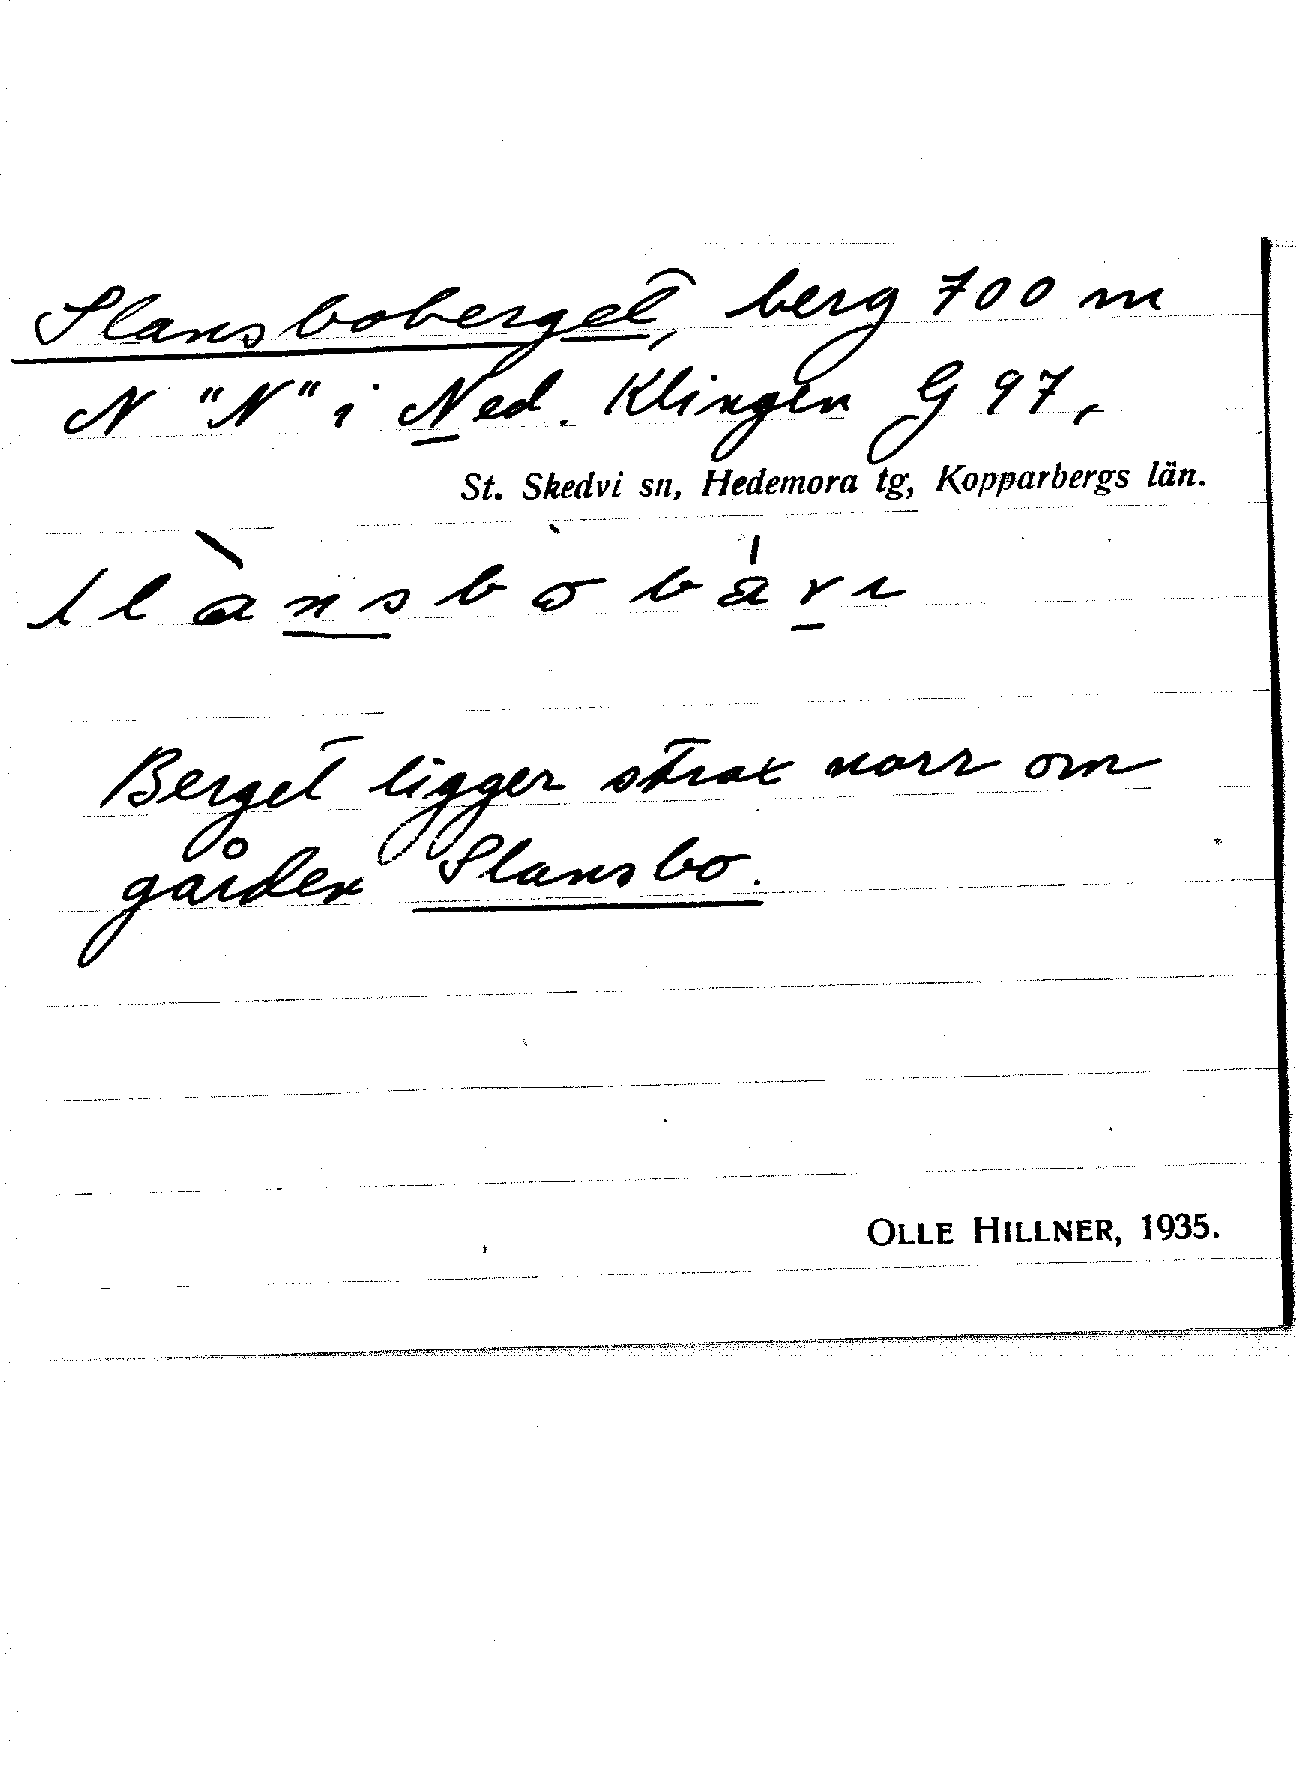 Slansboberget, berg 700 m
N "N" i Ned. Klingen G 97,
St. Skedvi sn, Hedemora tg, Kopparbergs län.
Berget ligger strax norr om
gården Slansbo.
OLLE HILLNER, 1935.